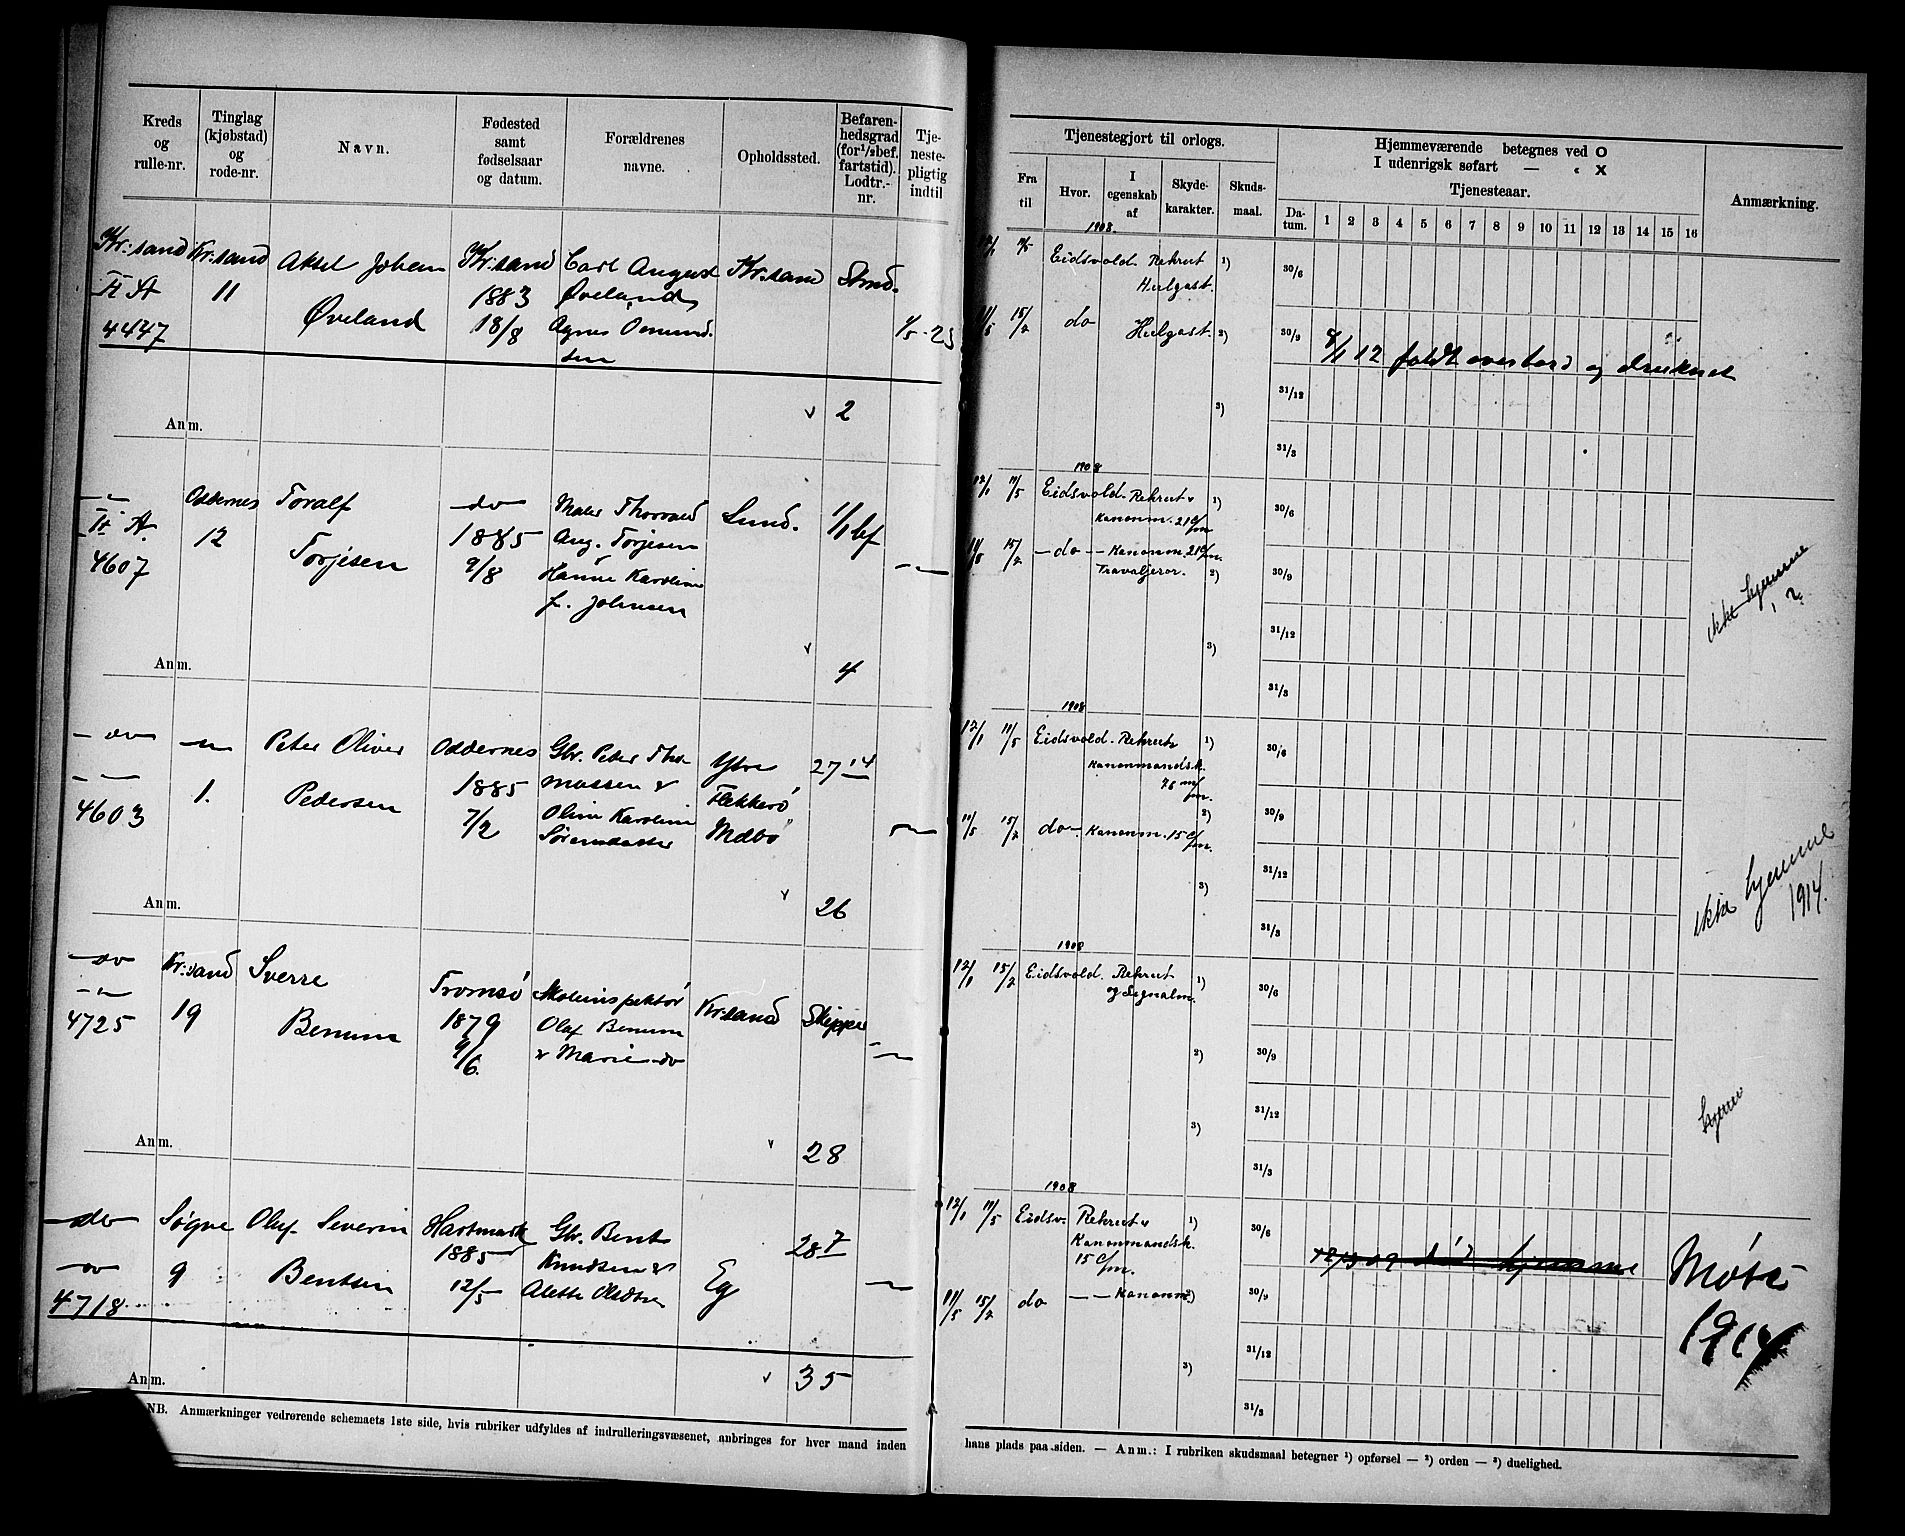 Kreds og rulle-nr. | Tinglag (kjøbstad) og rode-nr. | Navn. | Fødested samt fødselsaar og datum. | Forældrenes navne. | Opholdssted. | Befaren-hedsgrad (for 1/2 bef. fartstid). Lodtr.-nr. | Tje-neste-pligtig indtil
Kr:sand Kr:sand Aksel Johan Kr:sand Carl August Kr:sand Strmd.
II A 11 1883 Øveland
4447 Øveland 18/8 Agnes Osmund- 1/5-23
sen
2
Anm.
Oddernes Toralf do Maler Thorvald Lund. 1/1 bef
II A 12 1885 Aug. Torjesen
4607 Torjesen 9/8 Hanne Karoline
f. Johnsen
Anm. 4
do Peter Oliver Oddernes Gbr. Peder Tho- Ytre 27 14
1. 1885 massen & Flekkerø
4603 Pedersen 7/2 Oline Karoline Mæbø
Sørensdatter
Anm. 26
do Kr:sand Sverre Tromsø Skoleinspektør Kr:sand Skipper
4725 19 Benum 1879 Olaf Benum
9/6. & Marie do
Anm. 28
do Søgne Oluf Severin Hartmark Gbr. Bent 28 7
do 9 Bentsen 1885 Knudsen & Eg
4718 12/5 Alette Oldtre
35
Anm.
NB. Anmærkninger vedrørende schemaets 1ste side, hvis rubriker udfyldes af indrulleringsvæsenet, anbringes for hver mand inden
Tjenestegjort til orlogs. | Hjemmeværende betegnes ved O
I udenrigsk søfart — " X
Tjenesteaar. | Anmærkning.
Fra til | Hvor. | I egenskab af | Skyde-karakter. | Skuds-maal. | Da-tum. 1 2 3 4 5 6 7 8 9 10 11 12 13 14 15 16
1908.
12/1 11/5 Eidsvold. Rekrut 1) 30/6
Hulgast.
11/5 15/2 do Hulgast. 2) 30/9 8/1 12 faldt overbord og druknet
3) 31/12
31/3
1908
12/1 11/5 Eidsvold. Rekrut & 1) 30/6
Kanonm. 21 c/m
11/5 15/2 do Kanonm. 21 c/m. 30/9 ikke hjemme
Travaljeror. 2)
3) 31/12
31/3
1908
12/1 11/5 Eidsvold. Rekrut & 1) 30/6
Kanonmandsk.
76 m/m.
11/5 15/2 do Kanonm. 15 c/m. 2) 30/9
3) 31/12 ikke hjemme
31/3 1914.
1908
12/1 15/2 Eidsvold. Rekrut 1) 30/6
og Signalm.
2) 30/9
3) 31/12 hjemme
31/3
1908
12/1 11/5 Eidsv. Rekrut & 1) 30/6
Kanonmandsk. 12/3 09 død hjemme Møtt
15 c/m.
11/5 15/2 do Kanonm. 2) 30/9
3) 31/12 1914
31/3
hans plads paa siden. — Anm.: I rubriken skudsmaal betegner 1) opførsel — 2) orden — 3) duelighed.